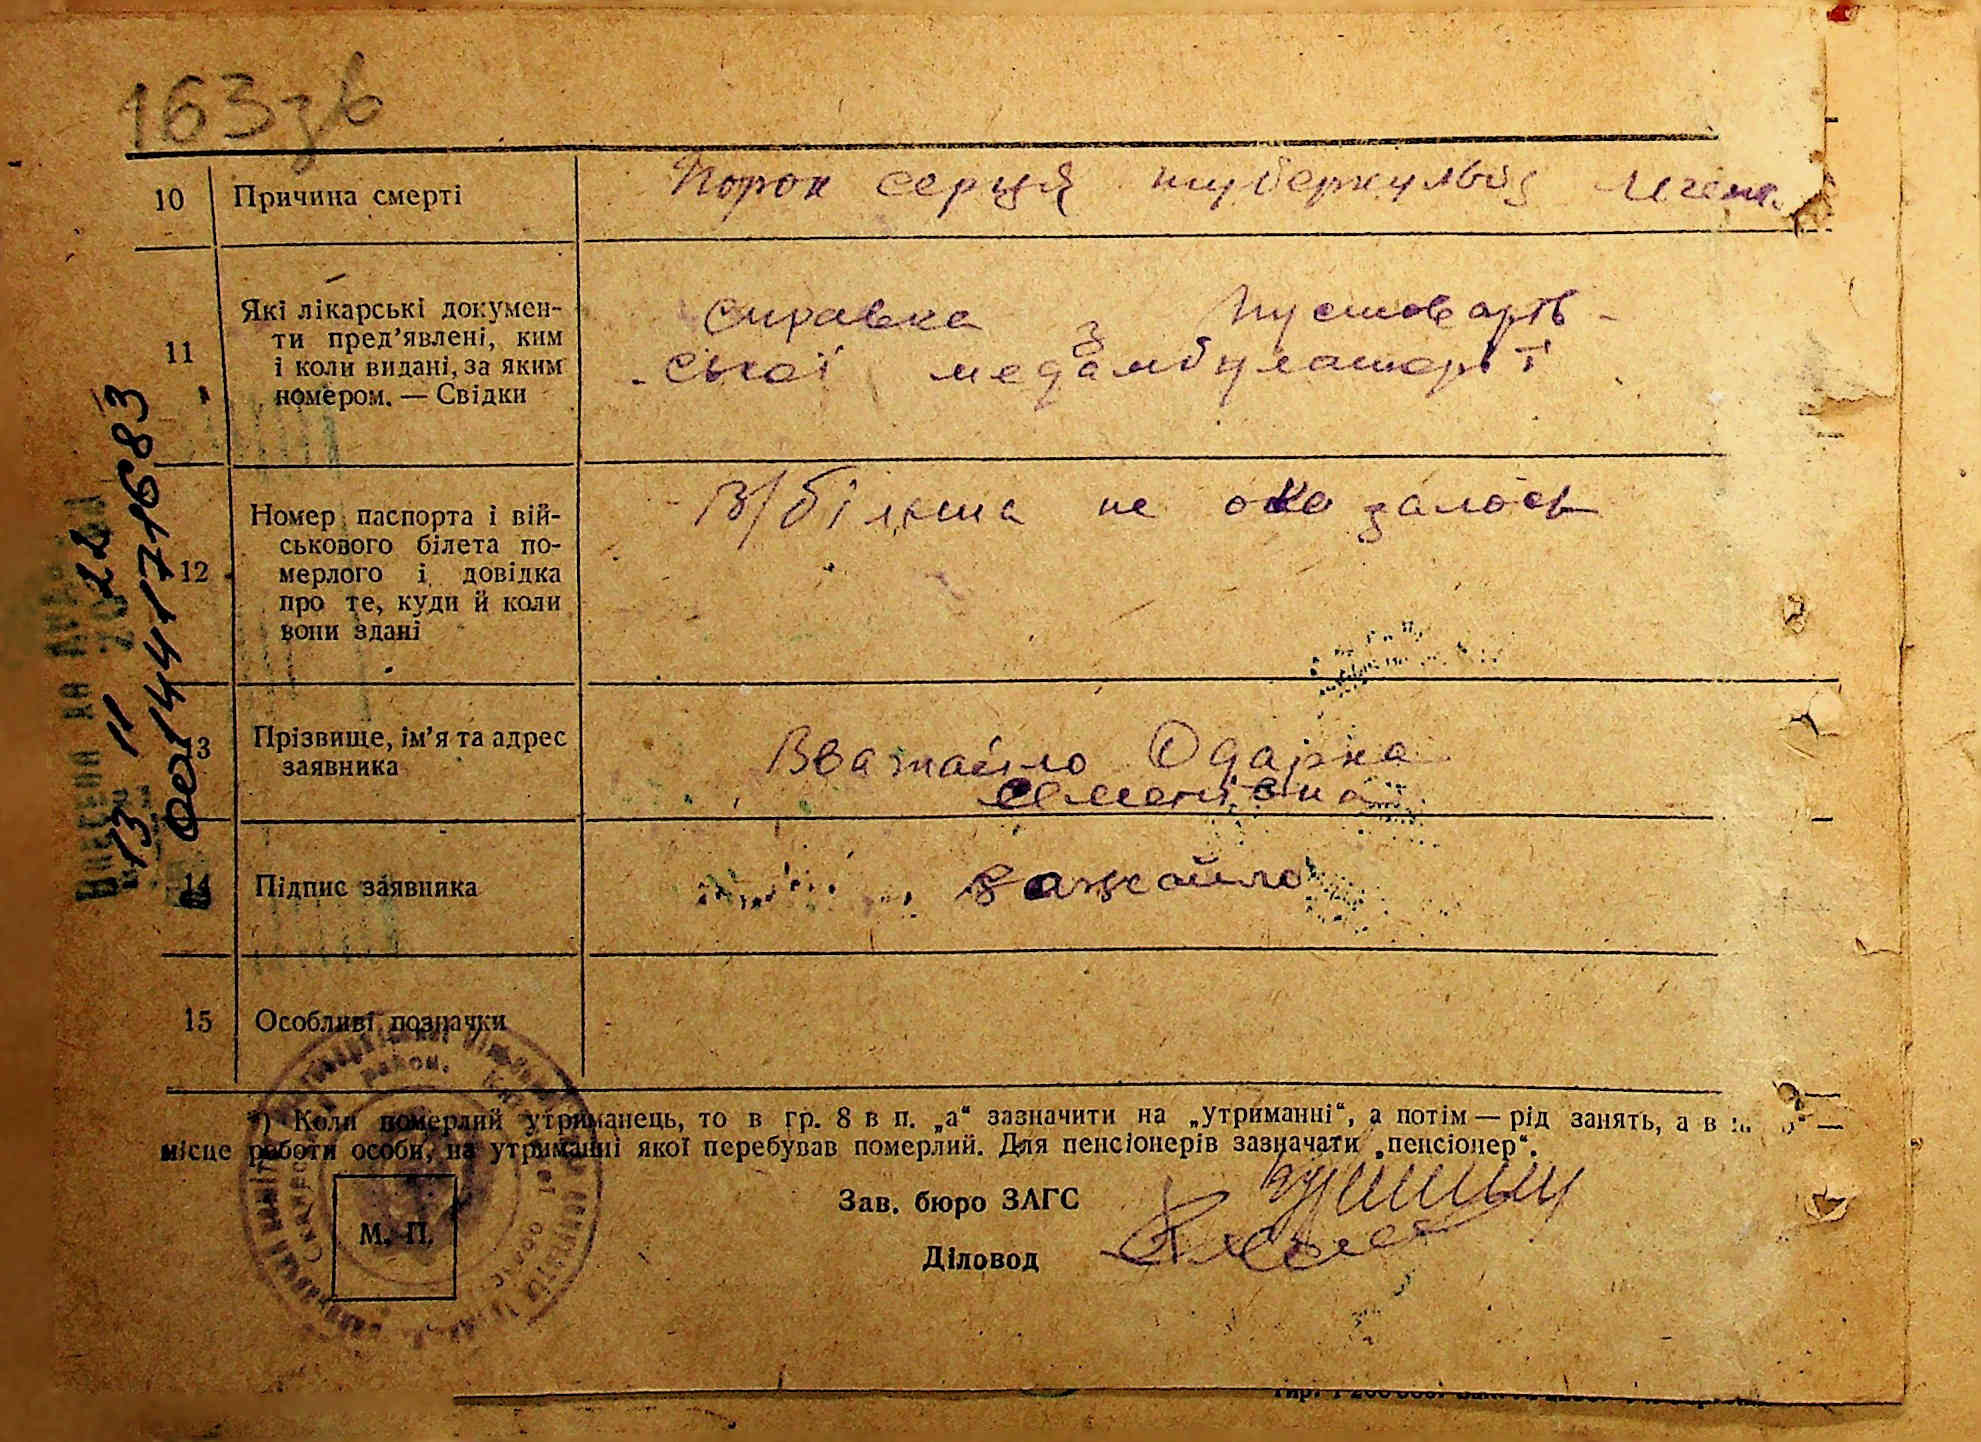 163 зв
10 Причина смерті Порок серця туберкульоз легень
11 Які лікарські докумен-
ти пред’явлені, ким
і коли видані, за яким
номером. — Свідки
справка з Пустоварів-
ської медамбулаторії
12 Номер паспорта і вій-
ськового білета по-
мерлого і довідка
про те, куди й коли
вони здані
В/білета не оказалось
13 Прізвище, ім’я та адрес
заявника
Вважайло Одарка
Семенівна
14 Підпис заявника Важайло
15 Особливі позначки
*) Коли померлий утриманець, то в гр. 8 в п. „а“ зазначити на „утриманні“, а потім — рід занять, а в п.
місце роботи особи, на утриманні якої перебував померлий. Для пенсіонерів зазначати „пенсіонер“.
М. П.
Зав. бюро ЗАГС
Діловод
13 11 22
00144171683
район.